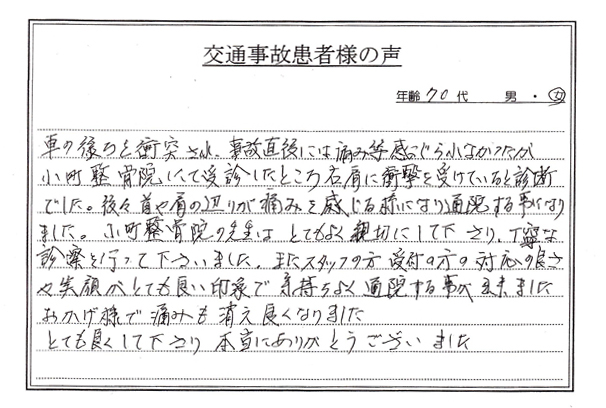 交通事故患者様の声
年齢 70 代 男 ・ 女
車の後ろを衝突され、事故直後には痛み等感じられなかったが
小町整骨院にて受診したところ右肩に衝撃を受けていると診断
でした。後々首や肩の辺りが痛みを感じる様になり通院する事になり
ました。小町整骨院の先生は とてもよく親切にして下さり、丁寧な
診察を行って下さいました。またスタッフの方 受付の方の対応の良さ
や笑顔がとても良い印象で気持ちよく通院する事が出来ました
おかげ様で痛みも消え良くなりました
とても良くして下さり 本当にありがとうございました